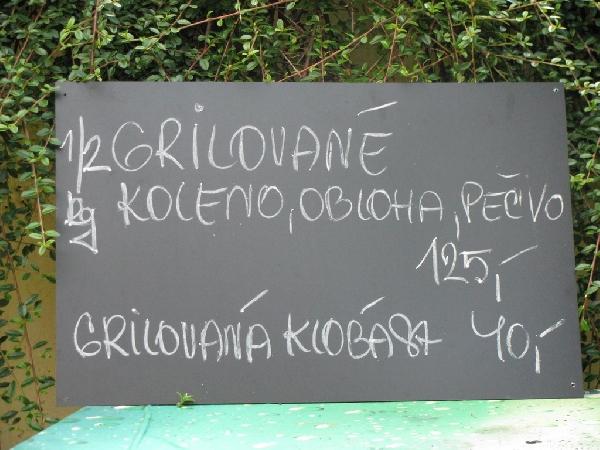 1/2 GRILOVANÉ
kg KOLENO, OBLOHA, PEČIVO
125,-
GRILOVANÁ KLOBÁSA 40,-